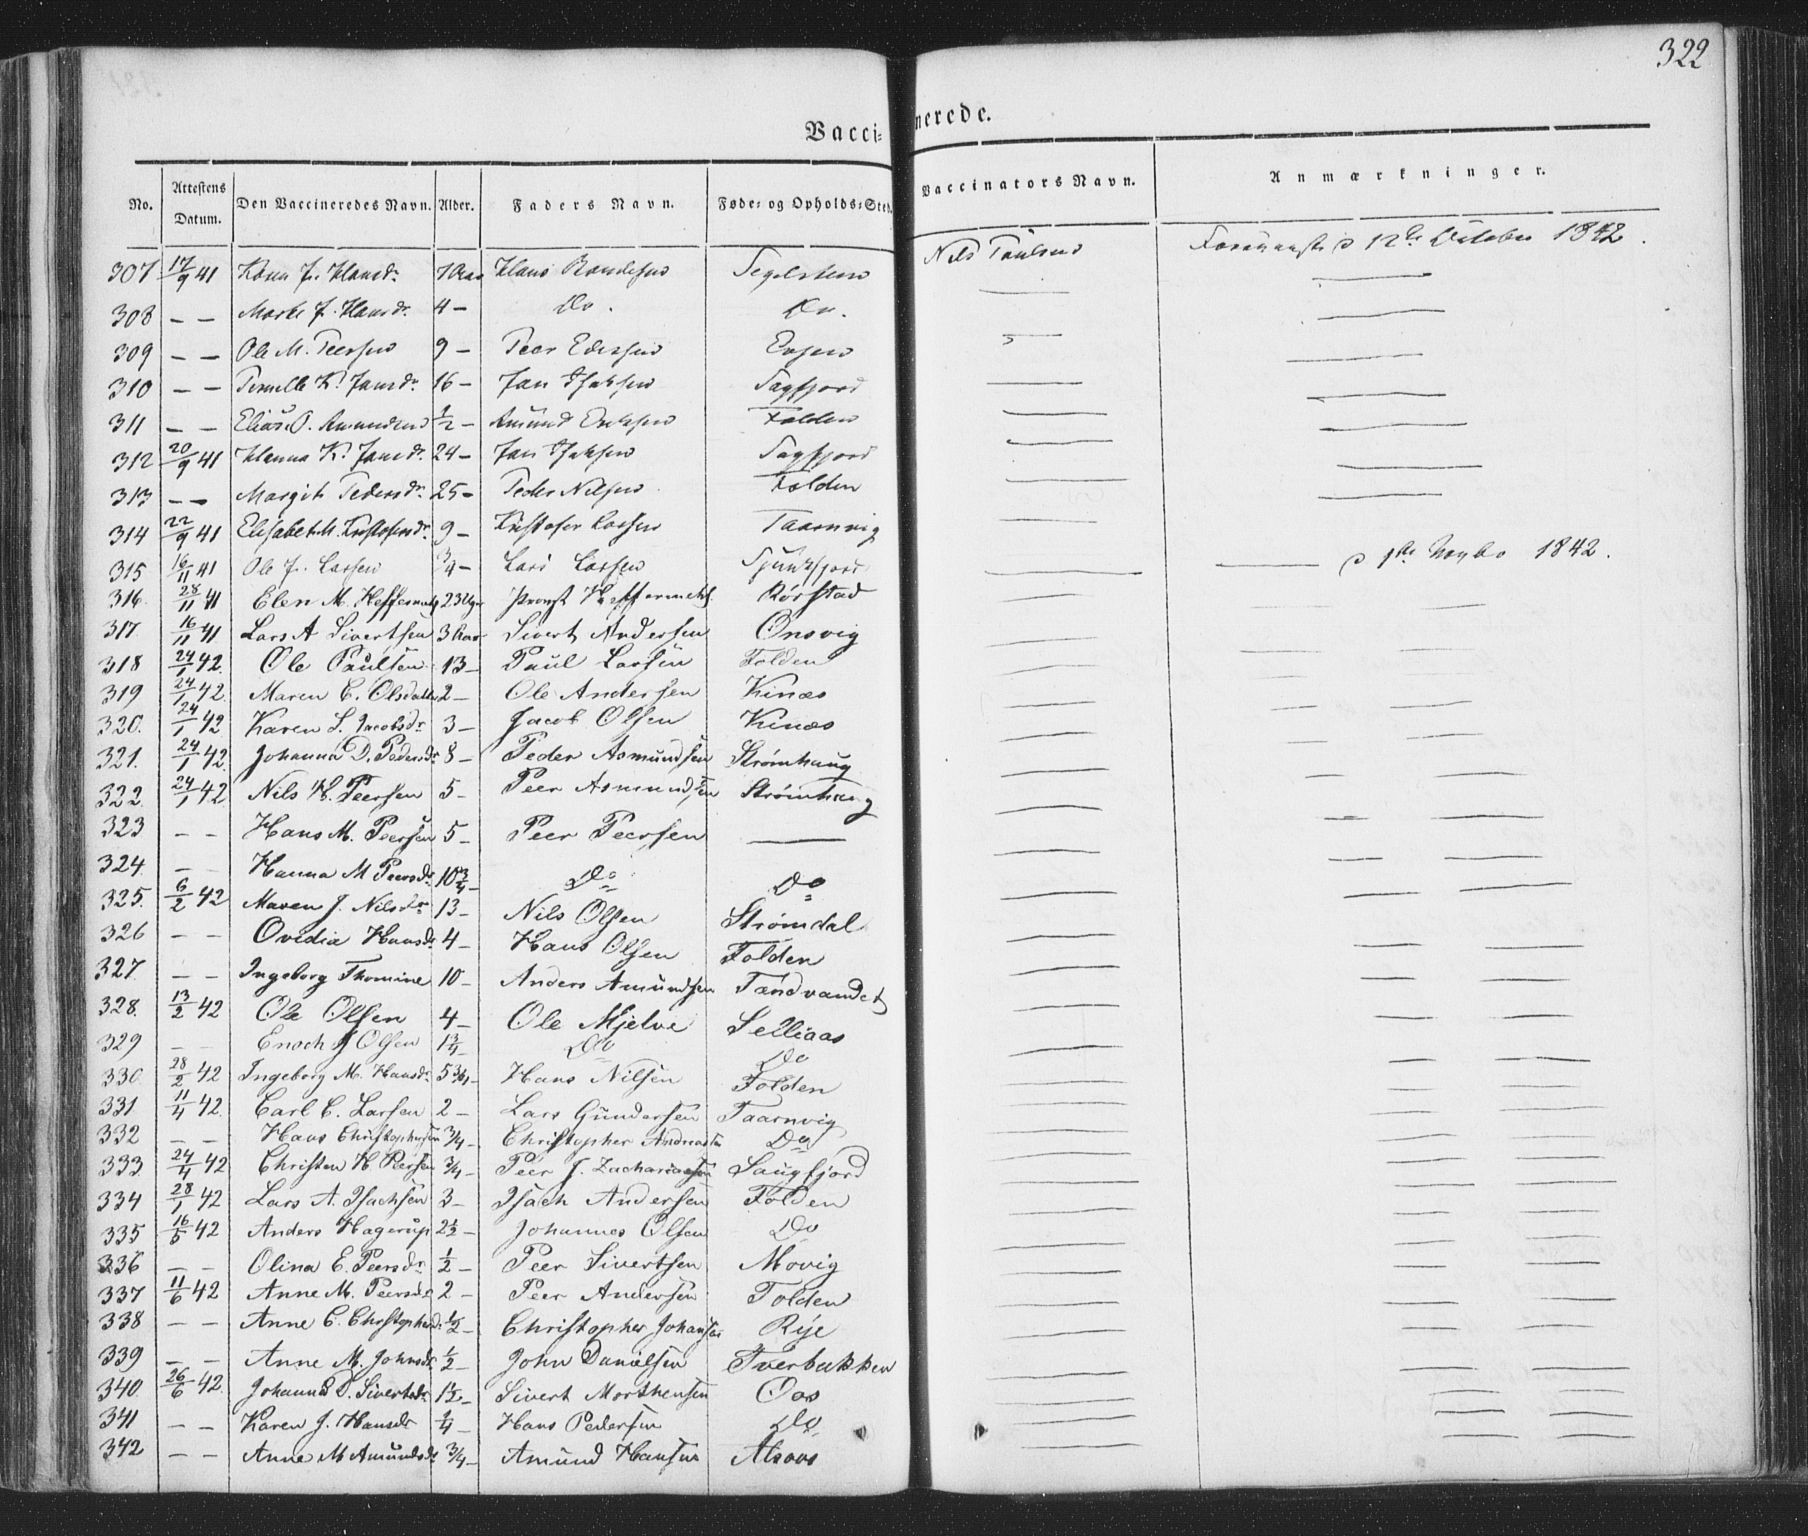 322
Vaccinerede.
No. Attestens Datum. Den Vaccineredes Navn. Alder. Faders Navn. Føde- og Opholds-Sted. Vaccinators Navn. Anmærkninger.
307 17/9 41 Hansdr. 7 Aar Hans Nils 12te October 1842.
308 — — Hansdr. 4 — Do. Do.
309 — — Ole M. Peersen 9 — Peer
310 — — Pernille K. Jansdr. 16 — Jan Isaksen Sagfjord
311 — — Elias O. Amundsen 1/2 — Amund Eriksen Folden
312 20/9 41 Hanna K. Jansdr. 24 — Jan Isaksen Sagfjord
313 — — Margit Pedersdr. 25 — Peder Nilsen Folden
314 22/9 41 Elisabet M. Kristofersdr. 9 — Kristofer Larsen Taarnvig
315 16/11 41 Ole J. Larsen 3/4 — Lars Larsen 1842.
316. 28/11 41 Elen M. 23 Uger Provst Rørstad
317. 16/11 41 Lars A Sivertsen 3 Aar Sivert Andersen Onsvig
318 24/1 42. Ole Paulsen 13 — Paul Larsen Folden
319 24/1 42. Maren C. Olsdatter 2 — Ole Andersen Kinæs
320. 24/1 42 Karen S. Jacobsdr. 3 — Jacob Olsen Kinæs
321. 24/1 42. Johanna D. Pedersdr 8 — Peder Asmundsen Strømhaug
322. 24/1 42 Nils H. Peersen 5 — Peer Asmundsen Strømhaug
323 — — Hans M. Peersen 5 — Peer Peersen —
324. — — Hanna M Peersdr. 10 3/4 — Do Do
325. 6/2 42 Maren J. Nilsdr. 13 — Nils Olsen Strømdal
326 — — Ovidia Hansdr 4 — Hans Olsen Folden
327. — — Ingeborg Thomine 10 — Anders Amundsen Tændvandet
328. 13/2 42 Ole Olsen 4 — Ole Mjelve Selliaas
329 — — Enoch J Olsen 1 3/4 Do Do
330. 28/2 42 Ingeborg M. Hansdr. 5 3/4 — Hans Nilsen Folden
331 11/4 42. Carl C. Larsen 2 — Lars Gundersen Taarnvig
332 — — Hans Christophersen 3/4 — Christopher Andreasen Do
333 24/4 42 Christen H. Peersen 3/4 — Peer J. Zachariassen Saugfjord
334 28/1 42 Lars A. Isachsen 3 — Isach Andersen Folden
335 16/5 42 Anders Hagerup 2 1/2 — Johannes Olsen Do
336 — — Olina E. Peersdr. 1/2 — Peer Sivertsen Movig
337 11/6 42 Anne M. Peersdr 2 — Peer Andersen Folden
338 — — Anne C. Christophersdr. 1/2 — Christopher Johansen Rye
339 — — Anne M. Johnsdr 1/2 — John Danielsen Tverbakken
340. 26/6 42. Johanna D. Sivertsdr 1 1/2 — Sivert Morthensen Oos
341 — — Karen J. Hansdr 1/4 — Hans Pedersen Do
342 — — Anne M Amundsdr 3/4 — Amund Hansen Alsoos